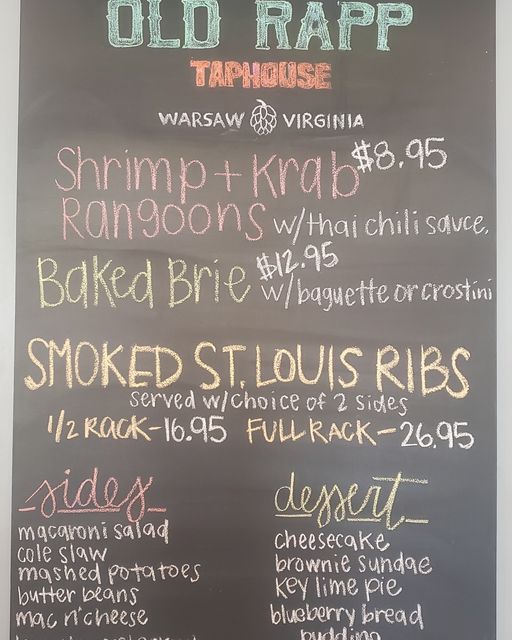 OLD RAPP
TAPHOUSE
WARSAW VIRGINIA
Shrimp + Krab $8.95
Rangoons w/thai chili sauce,
Baked Brie $12.95
w/baguette or crostini
SMOKED ST. LOUIS RIBS
served w/choice of 2 sides
1/2 RACK-16.95 FULL RACK-26.95
sides
macaroni salad
cole slaw
mashed potatoes
butter beans
mac n'cheese
dessert
cheesecake
brownie sundae
key lime pie
blueberry bread
pudding